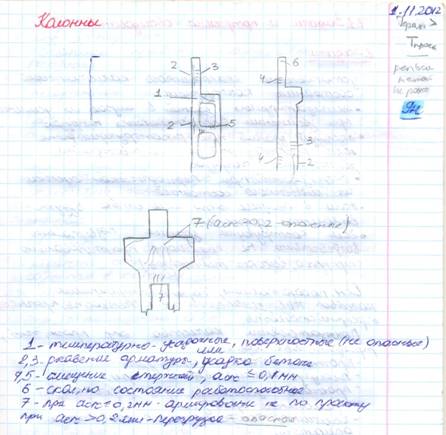 Колонны
1.11.2012
Тпроек
2
3
6
4
1
2
5
3
4
2
7 (aсrc>0,2-опасные)
7
1 - температурно-усадочные, поверхностные (не опасные)
2,3 - ржавение арматуры, или усадка бетона
4,5 - смещение стержней, acrc ≤ 0,1 мм
6 - скол, но состояние работоспособное
7 - при acrc=0,2мм - армирование не по проекту
при acrc >0,2мм - перегрузка - опасное